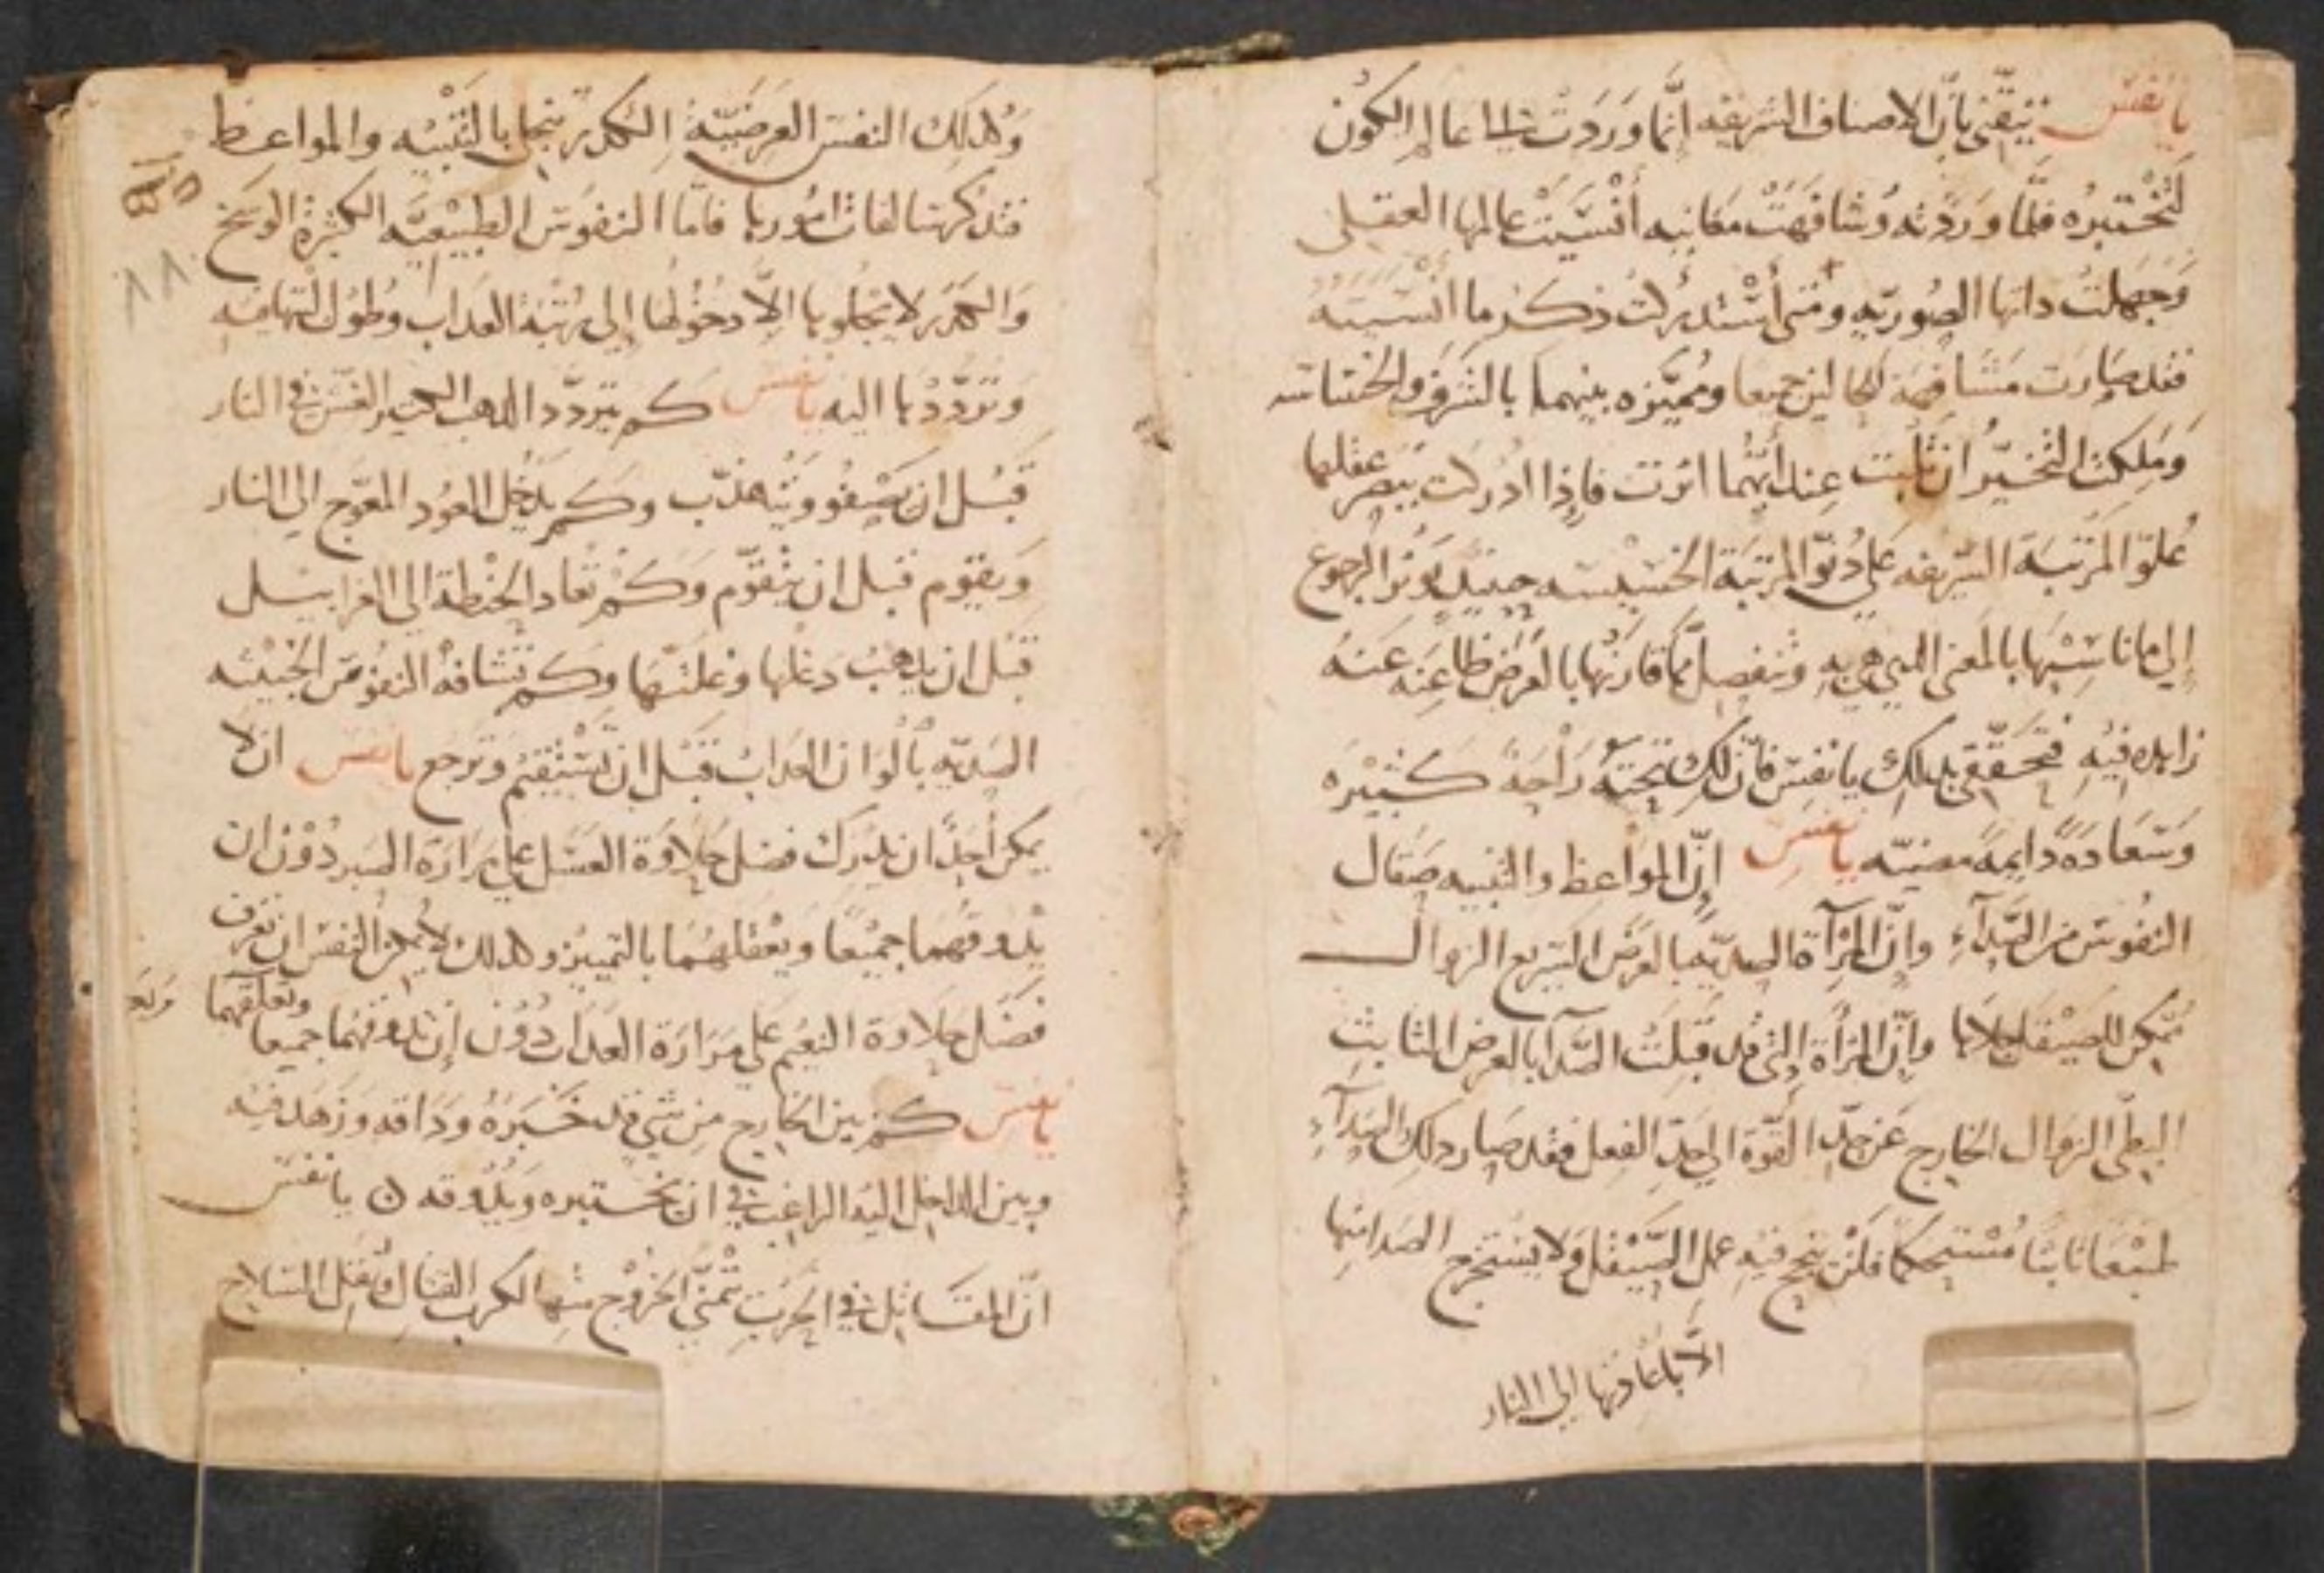 يا نفس تيقني بأن الاصناف الشريفه إنما وردت الى عالم الكون
لتختبره فلما وردته وشافهت معانيه أنسيت عالمها العقلى
وجهلت داتها الصوريه ومتى أستدركت ذكر ما انسيته
فقد صارت مشافهة للحالين جميعا ومميزه بينهما بالشرف والخساسه
وملكت التخير ان ثابت عند أيهما اثرت فإذا ادركت ببصر عقلها
علو المرتبة الشريفه على دنو المرتبة الخسيسه حينيد تؤثر الرجوع
إلى ما ناسبها بالمعنى الدي هي به وتنفصل مما قارنها بالعرض ظاعنه عنه
زايده فيه فتحققي بدلك يا نفس فان لك تحته راحة كثيره
وسعادة دايمة مضيه يا نفس إن المواعظ والتنبيه صقال
النفوس من الصدآء وإن المرآة الصديه بالعرض السريع الزوال
تمكن للصيقل جلاها وإن المرآة التى قد قبلت الصدآ بالعرض الثابت
البطى الزوال الخارج عن حد القوة الى حد الفعل فقد صار دلك الصدآء
طبعا ثابتا مستحكما فلن ينجح فيه عمل الصيقل ولا يستخرج الصدا منها
الا باعادتها إلى النار
وكدلك النفس العرضية الكدر تنجلى بالتنبيه والمواعظ
فتدكرها لفات امورها فاما النفوس الطبيعيه الكثيرة الوسخ
والكدر لا يجلوها إلا دخولها إلى رتبة العداب وطول التهافه
وترددها اليه يا نفس كم يتردد الدهب الغش في النار
قبل ان يصفو ويتهدب وكم يدخل العود المعوج الى النار
ويقوم قبل ان يتقوم وكم تعاد الحنطة الى الغرابيل
قبل ان يدهب دغلها وغلتها وكم تشافه النفوس الخبيثه
الصديه بألوان العداب قبل ان تستقيم وترجع يا نفس ان لا
يمكن أحدا ان يدرك فضل حلاوة العسل على مرارة الصبر دون ان
يدوقهما جميعا ويعقلهما بالتمييز وكدلك لا يمكن النفس ان تعرف
فضل حلاوة النعيم على مرارة العداب دون ان تدوقهما جميعا وتعقلهما
يا نفس كم بين الخارج من شي قد خبره وداقه وزهد فيه
وبين الداخل اليه الراغب في ان يختبره ويدوقه ن يا نفس
ان المقاتل في الحرب تمنى الخروج منها لكرب القتال وثقل السلاح